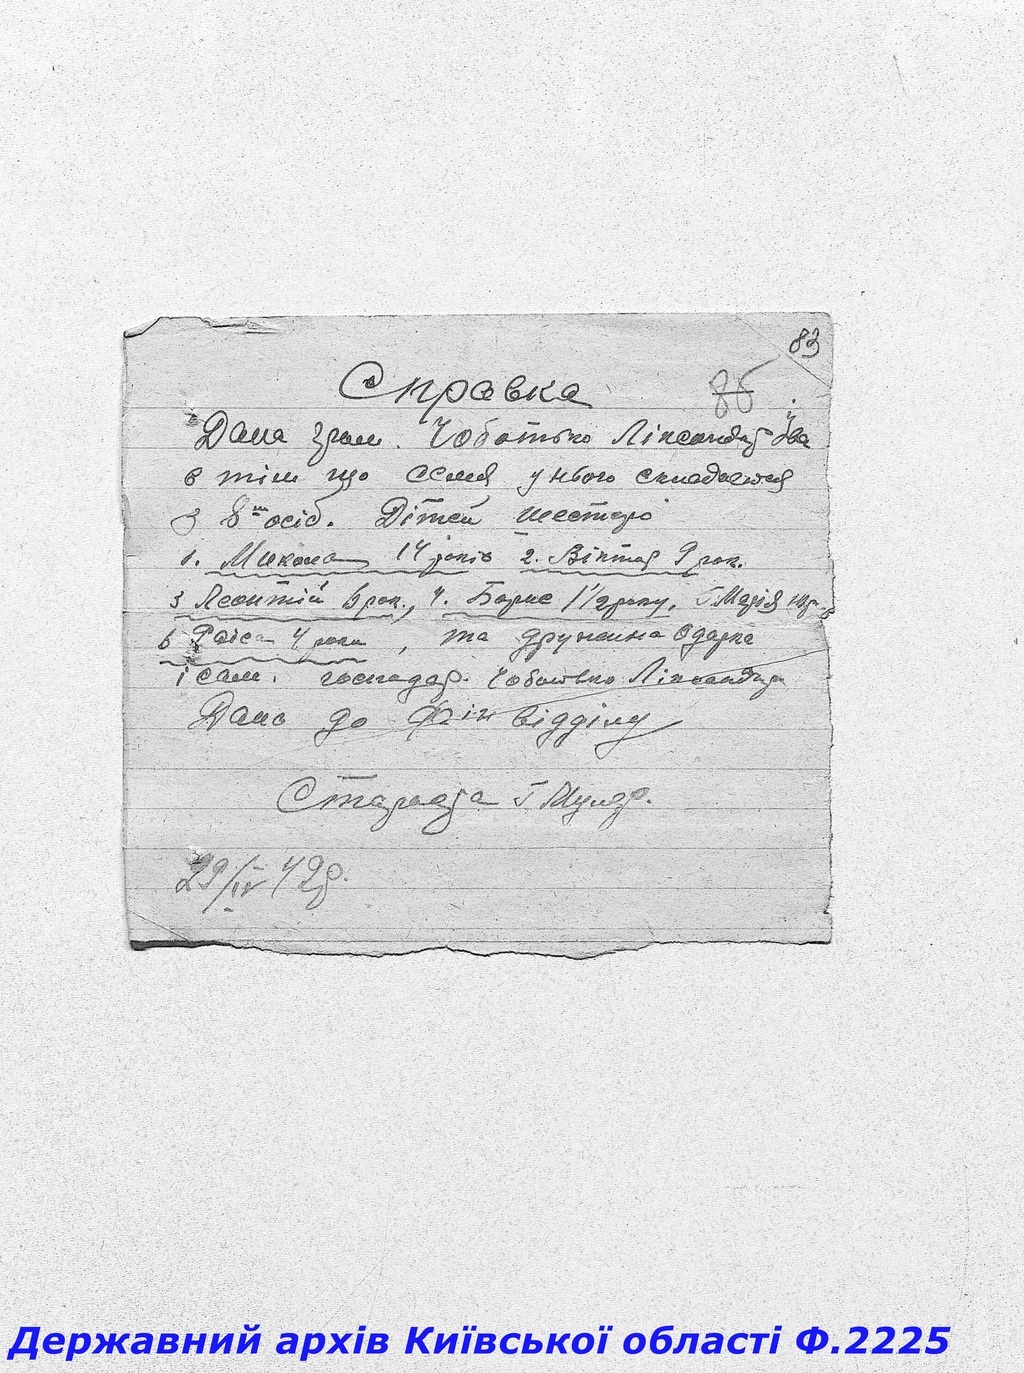 83
86
Справка
Дана гром. Чоботько Ліксандр Ів
в тім що семя у нього складається
з 8ми осіб. Дітей шестеро
1. Микола 14 років 2. Віктор 9 рок.
3 Леонтій 6 рок., 4. Борис 1 1/2 року, 5 Марія
6 Раіса 4 роки, та дружина Одарка
і сам. господар. Чоботько Ліксандр
Дана до Фін відділу
Староста
29/IV 42р.
Державний архів Київської області Ф.2225